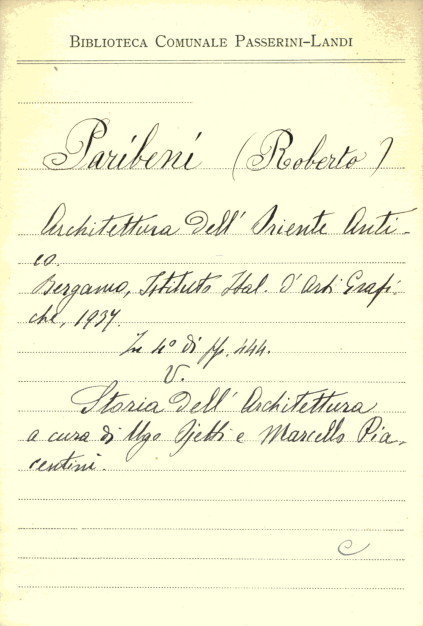 BIBLIOTECA COMUNALE PASSERINI-LANDI
Paribeni (Roberto)
Architettura dell' Oriente Anti-
co.
Bergamo, Istituto Ital. d'Arti Grafi-
che, 1937.
In 4° di pp. 444.
V.
Storia dell' Architettura
a cura di Ugo Ojetti e Marcello Pia-
centini.
C